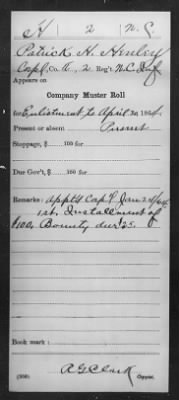 H 2 N.C.
Patrick H. Henley
Capt, Co. A, 2 Reg't N.C. Inf
Appears on
Company Muster Roll
for Enlistment to April 30, 1864.
Present or absent Present
Stoppage, $ 100 for
Due Gov't, $ 100 for
Remarks: Appt'd Capt Jan 24/64
1st. Installment of
$100, Bounty due $25.
Book mark:
A G Clark
Copyist.